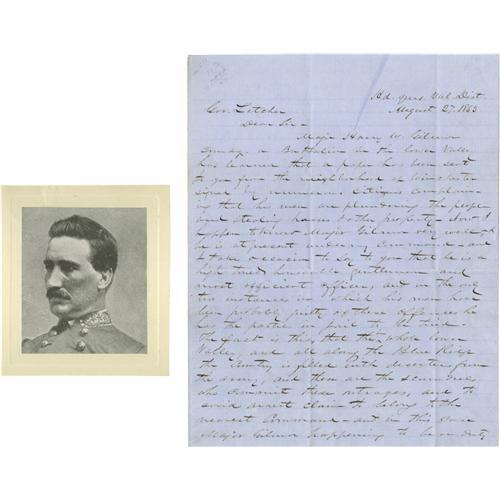 Hd. qrs. Val. Dist.
Gov. Letcher August 27. 1863
Dear Sir -
Major Harry W. Gilmor
Commdg. a Battalion in the lower Valley
has learned that a paper has been sent
to you from the neighborhood of Winchester
signed by numerous citizens complain-
ing that his men are plundering the people
and stealing horses & other property. Now I
happen to know Major Gilmor very well &
he is at present under my command - and
I take occasion to say to you that he is a
high toned honorable gentleman and
most efficient officer, and in the
two instances in which his men have
been guilty of these offences he
has the parties in to be tried.
The fact is this, that the whole lower
Valley, and all along the Blue Ridge
the country is filled with deserters from
the army, and these are the scoundrels
who commit these outrages, and to
avoid arrest claim to belong to the
nearest command - and in this case
Major Gilmor happening to be on duty